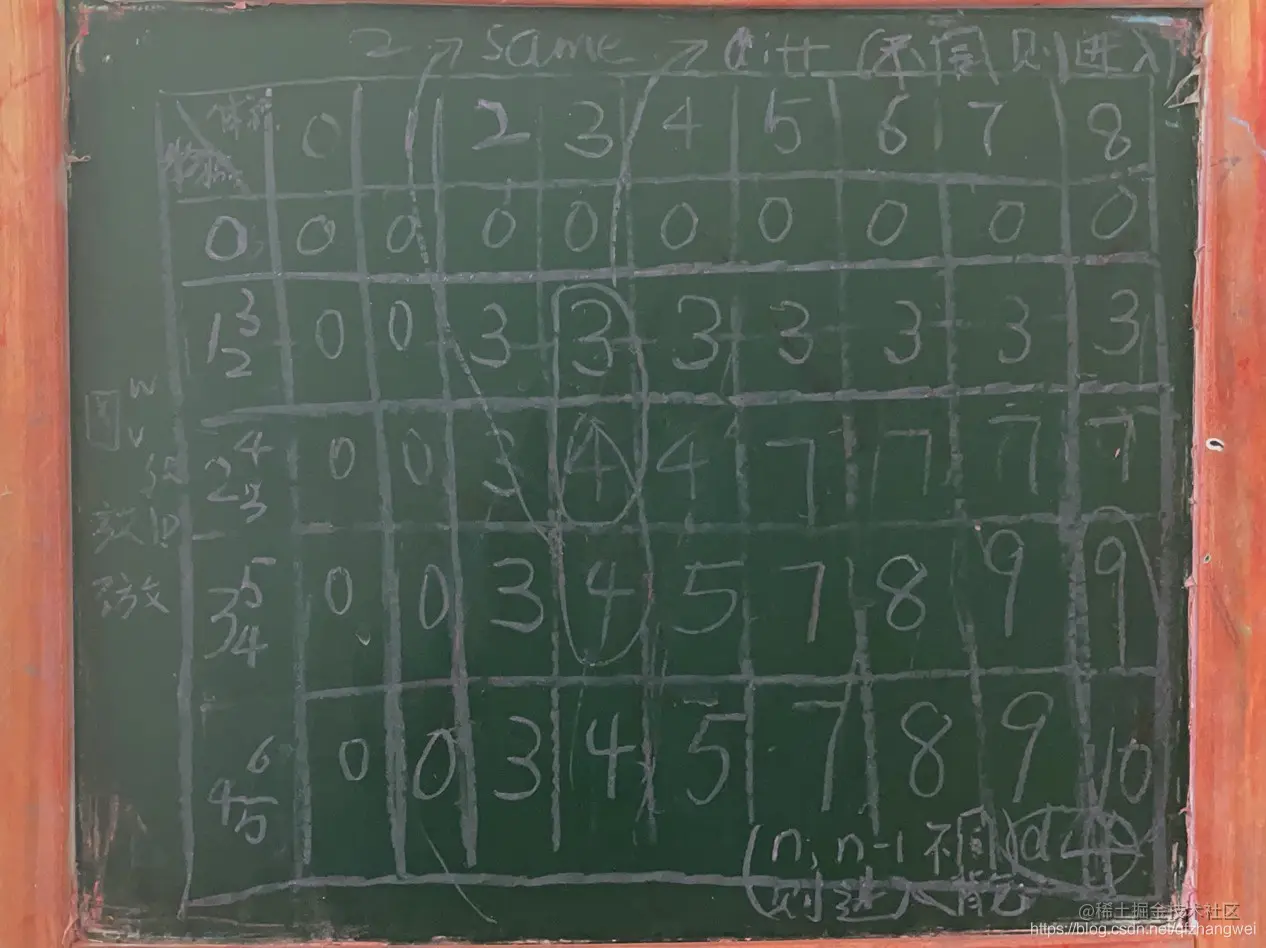 2 → same → diff (不同则进入)
体积 0 2 3 4 5 6 7 8
物品
0 0 0 0 0 0 0 0 0 0
1 3 2 0 0 3 3 3 3 3 3 3
2 4 3 0 0 3 4 4 7 7 7 7
3 5 4 0 0 3 4 5 7 8 9 9
4 6 5 0 0 3 4 5 7 8 9 10
w
v
放
(n, n-1 不同
则进入背包
@稀土掘金技术社区
https://blog.csdn.net/qizhangwei